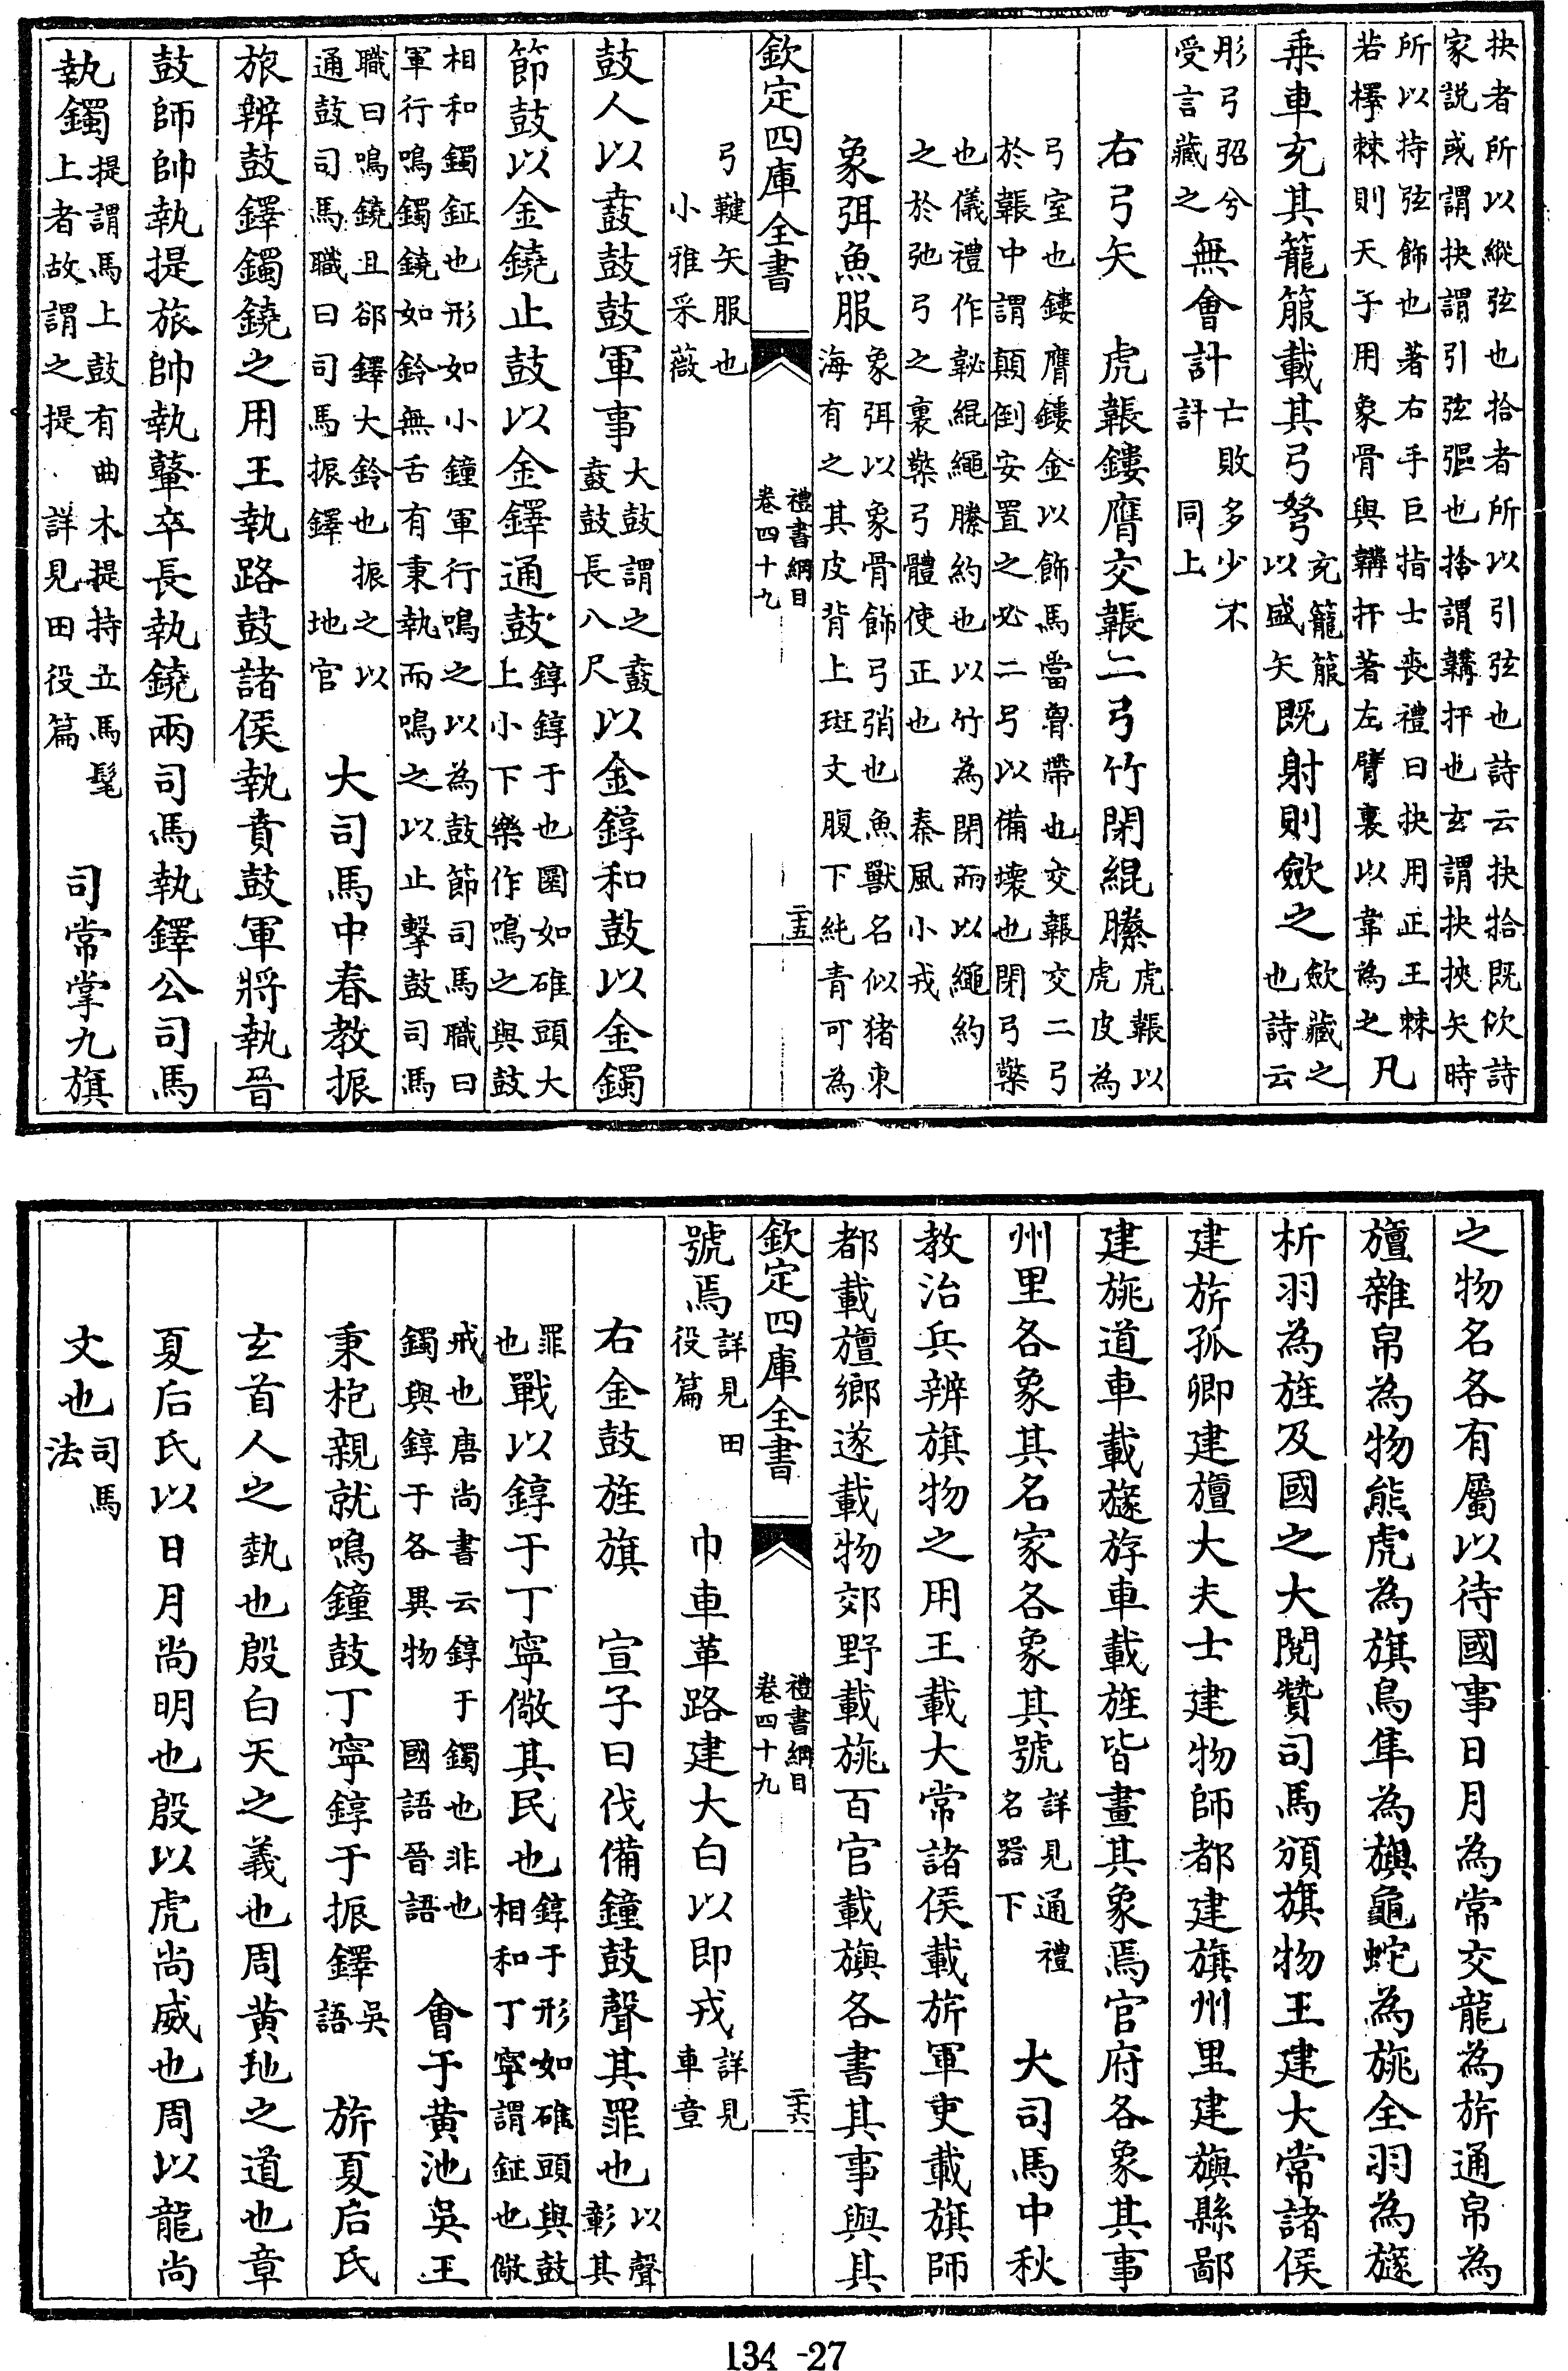 抉者所以縱弦也拾者所以引弦也詩云抉拾既佽詩
家説或謂抉謂引弦彄也拾謂韝扞也玄謂抉挾矢時
所以持弦飾也著右手巨指士喪禮曰抉用正王棘
若檡棘則天子用象骨與韝扞著左臂裏以韋為之凡
乘車充其籠箙載其弓弩充籠箙以盛矢既射則斂之斂藏之也詩云
彤弓弨兮受言藏之無會計亡敗多少不計同上
右弓矢　虎韔鏤膺交韔二弓竹閉緄縢虎韔以虎皮為
弓室也鏤膺鏤金以飾馬當胷帶也交韔交二弓
於韔中謂顛倒安置之必二弓以備壊也閉弓檠
也儀禮作䪐緄繩縢約也以竹為閉而以繩約
之於弛弓之裏檠弓體使正也　秦風小戎
象弭魚服象弭以象骨飾弓弰也魚獸名似猪東海有之其皮背上斑文腹下純青可為
欽定四庫全書　禮書綱目卷四十九　二十五
弓鞬矢服也小雅采薇
鼓人以鼖鼓鼓軍事大鼓謂之鼖鼖鼓長八尺以金錞和鼓以金鐲
節鼓以金鐃止鼓以金鐸通鼓錞錞于也圜如碓頭大上小下樂作鳴之與鼓
相和鐲鉦也形如小鐘軍行鳴之以為鼓節司馬職曰
軍行鳴鐲鐃如鈴無舌有秉執而鳴之以止擊鼓司馬
職曰鳴鐃且郤鐸大鈴也振之以通鼓司馬職曰司馬振鐸　地官　大司馬中春教振
旅辨鼓鐸鐲鐃之用王執路鼓諸侯執賁鼓軍將執晉
鼓師帥執提旅帥執鼙卒長執鐃兩司馬執鐸公司馬
執鐲提謂馬上鼓有曲木提持立馬髦上者故謂之提　詳見田役篇　司常掌九旗
之物名各有屬以待國事日月為常交龍為旂通帛為
旜雜帛為物熊虎為旗鳥隼為旟龜蛇為旐全羽為旞
析羽為旌及國之大閱贊司馬頒旗物王建大常諸侯
建旂孤卿建旜大夫士建物師都建旗州里建旟縣鄙
建旐道車載旞斿車載旌皆畫其象焉官府各象其事
州里各象其名家各象其號詳見通禮名器下　大司馬中秋
教治兵辨旗物之用王載大常諸侯載旂軍吏載旗師
都載旜鄉遂載物郊野載旐百官載旟各書其事與其
欽定四庫全書　禮書綱目卷四十九　二十六
號焉詳見田役篇　巾車革路建大白以即戎詳見車章
右金鼓旌旗　宣子曰伐備鐘鼓聲其罪也以聲彰其
罪也戰以錞于丁寧儆其民也錞于形如碓頭與鼓相和丁寧謂鉦也儆
戒也唐尚書云錞于鐲也非也鐲與錞于各異物　國語晉語　會于黄池吳王
秉枹親就鳴鐘鼓丁寧錞于振鐸吳語　旂夏后氏
玄首人之埶也殷白天之義也周黄地之道也章
夏后氏以日月尚明也殷以虎尚威也周以龍尚
文也司馬法
134-27